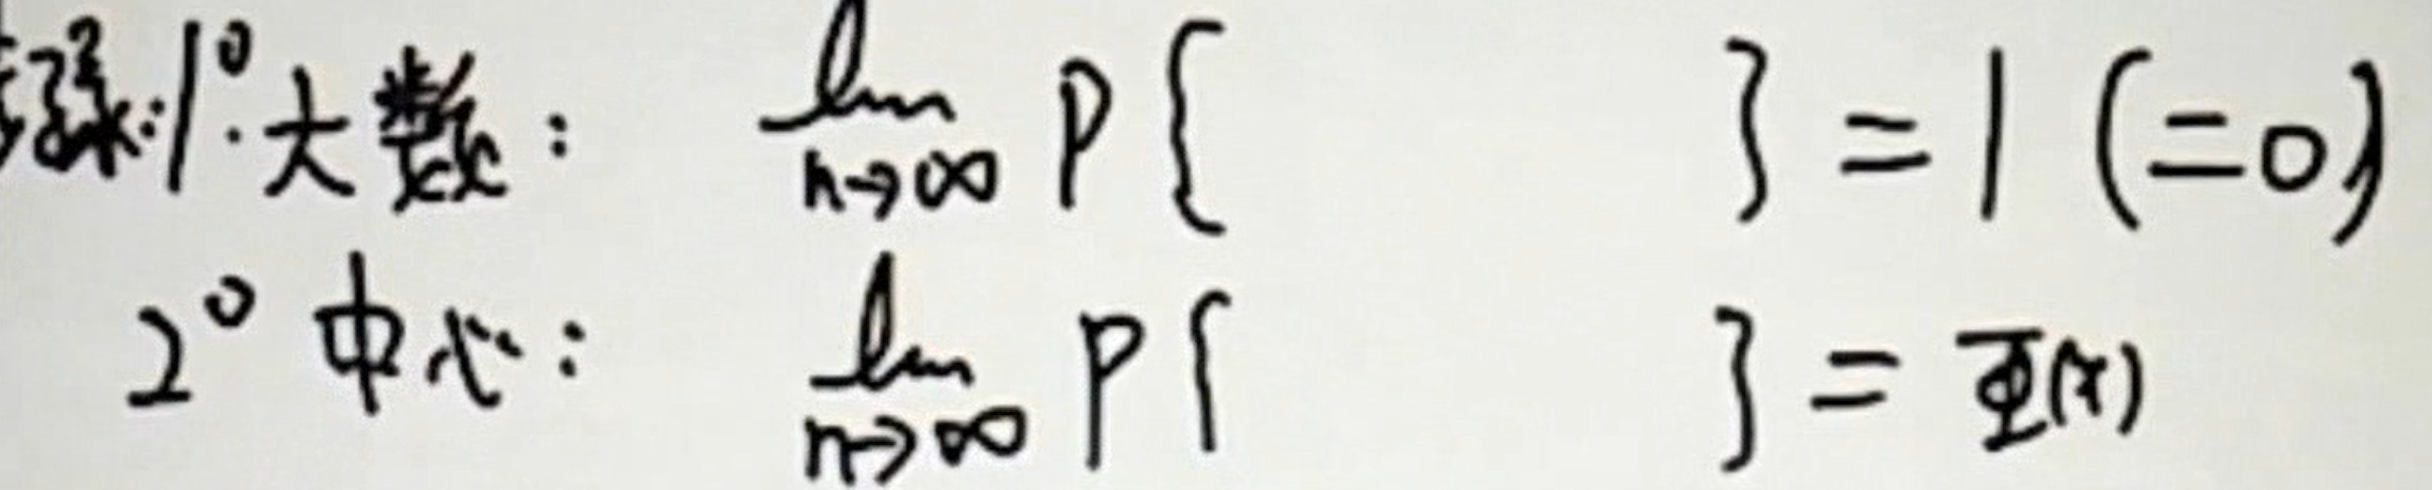 1° 大数: lim n→∞ P{ } = 1 (=0)
2° 中心: lim n→∞ P{ } = Φ(x)